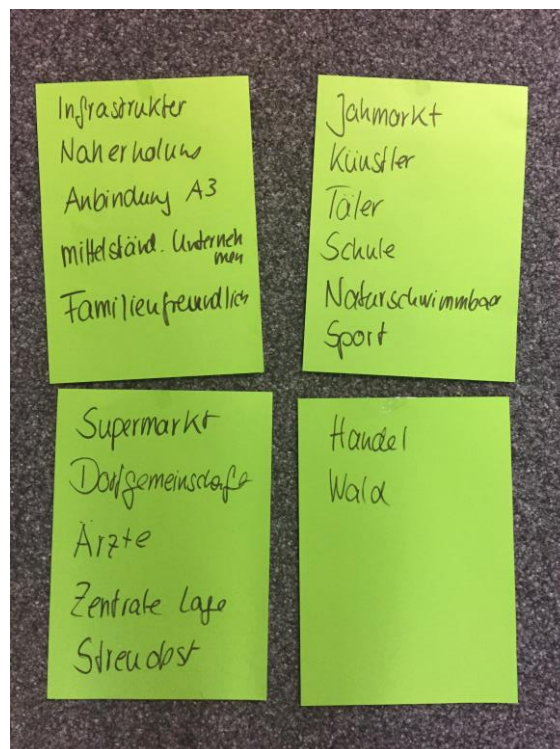 Infrastrukter
Naherholung
Anbindung A3
mittelständ. Unterneh
men
Familienfreundlich
Jahmarkt
Künstler
Täler
Schule
Naturschwimmbad
Sport
Supermarkt
Dorfgemeinschaft
Ärzte
Zentrale Lage
Streuobst
Handel
Wald